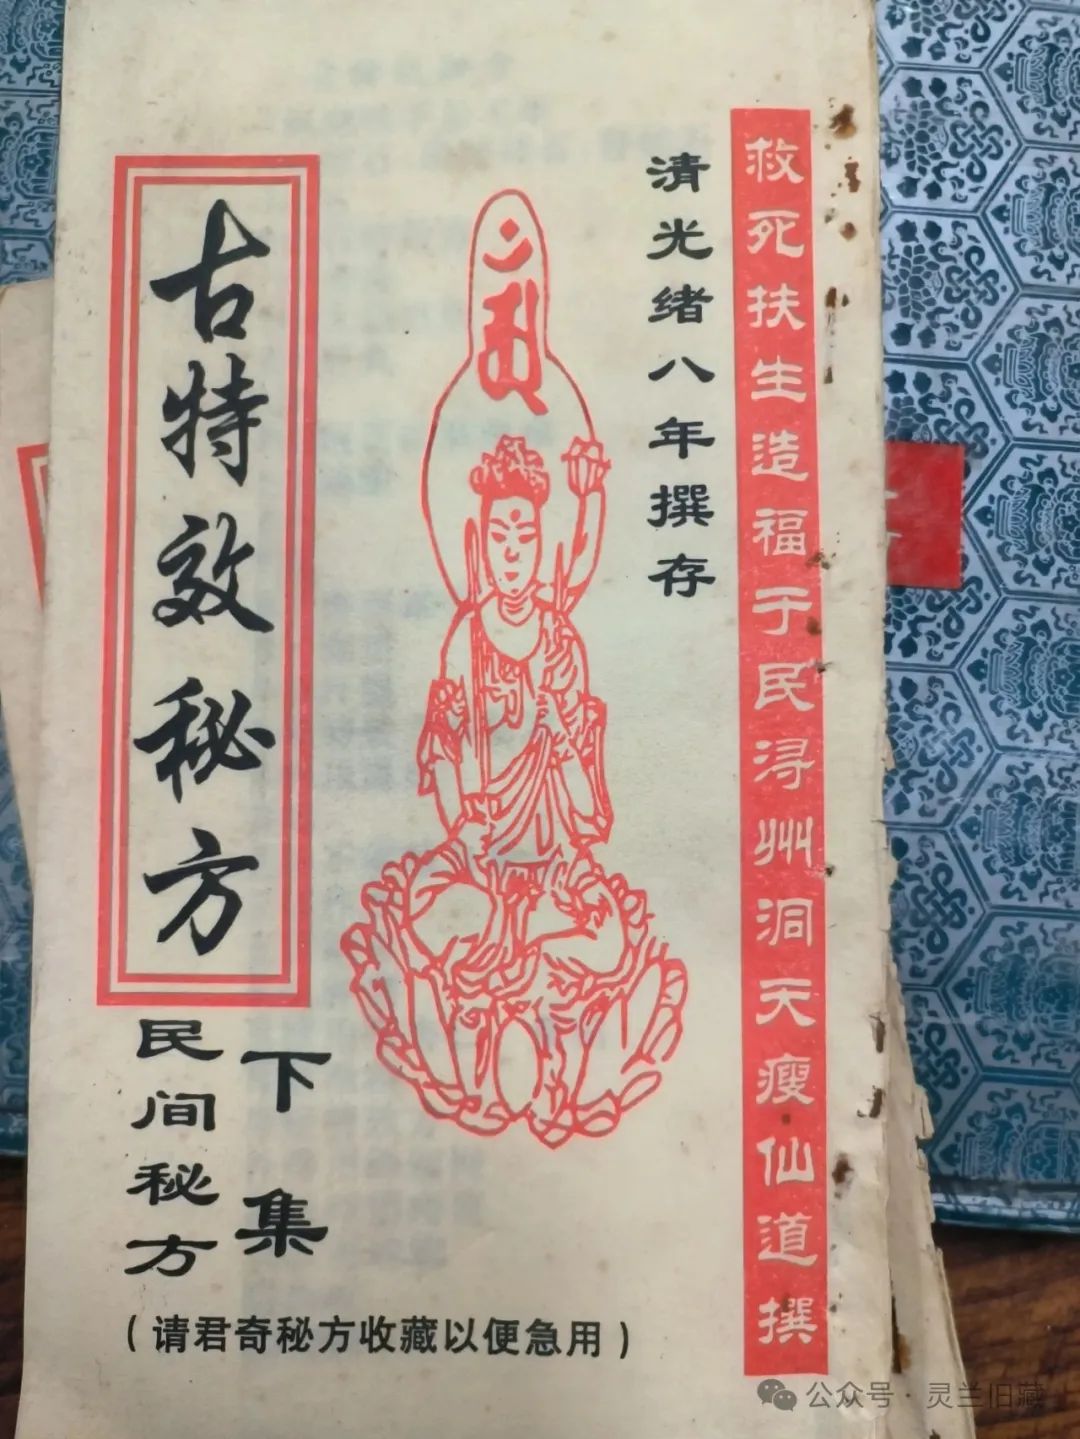 救死扶生造福于民浔州洞天瘦仙道撰
清光绪八年撰存
古特效秘方
下集
民间秘方
（请君奇秘方收藏以便急用）
公众号·灵兰旧藏